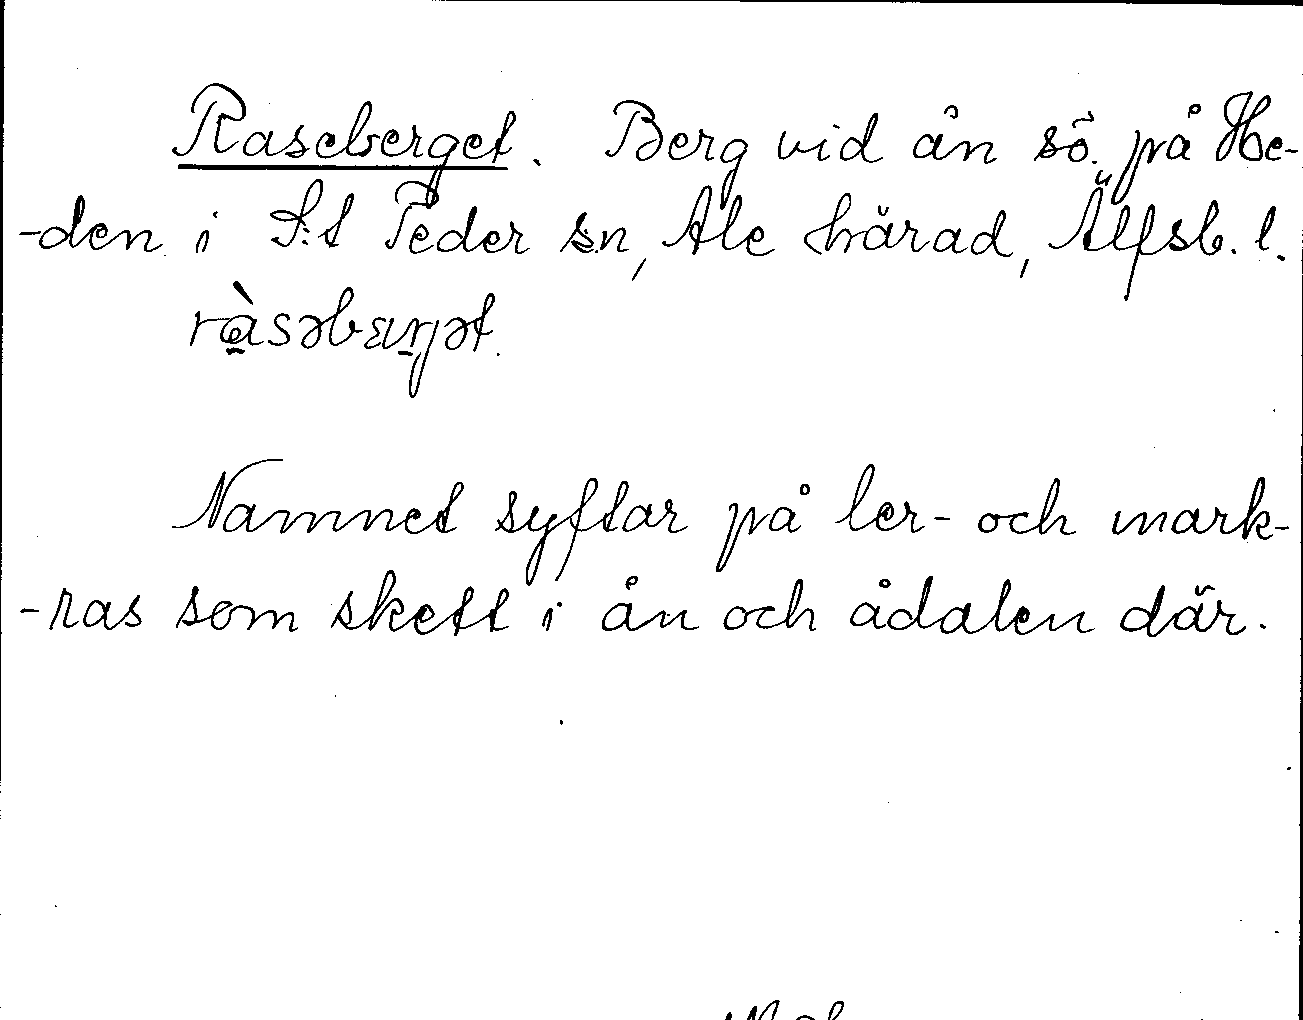 Raseberget. Berg vid ån sö. på He-
-den i S:t Peder sn, Ale härad, Älfsb. l.
Namnet syftar på ler- och mark-
-ras som skett i ån och ådalen där.